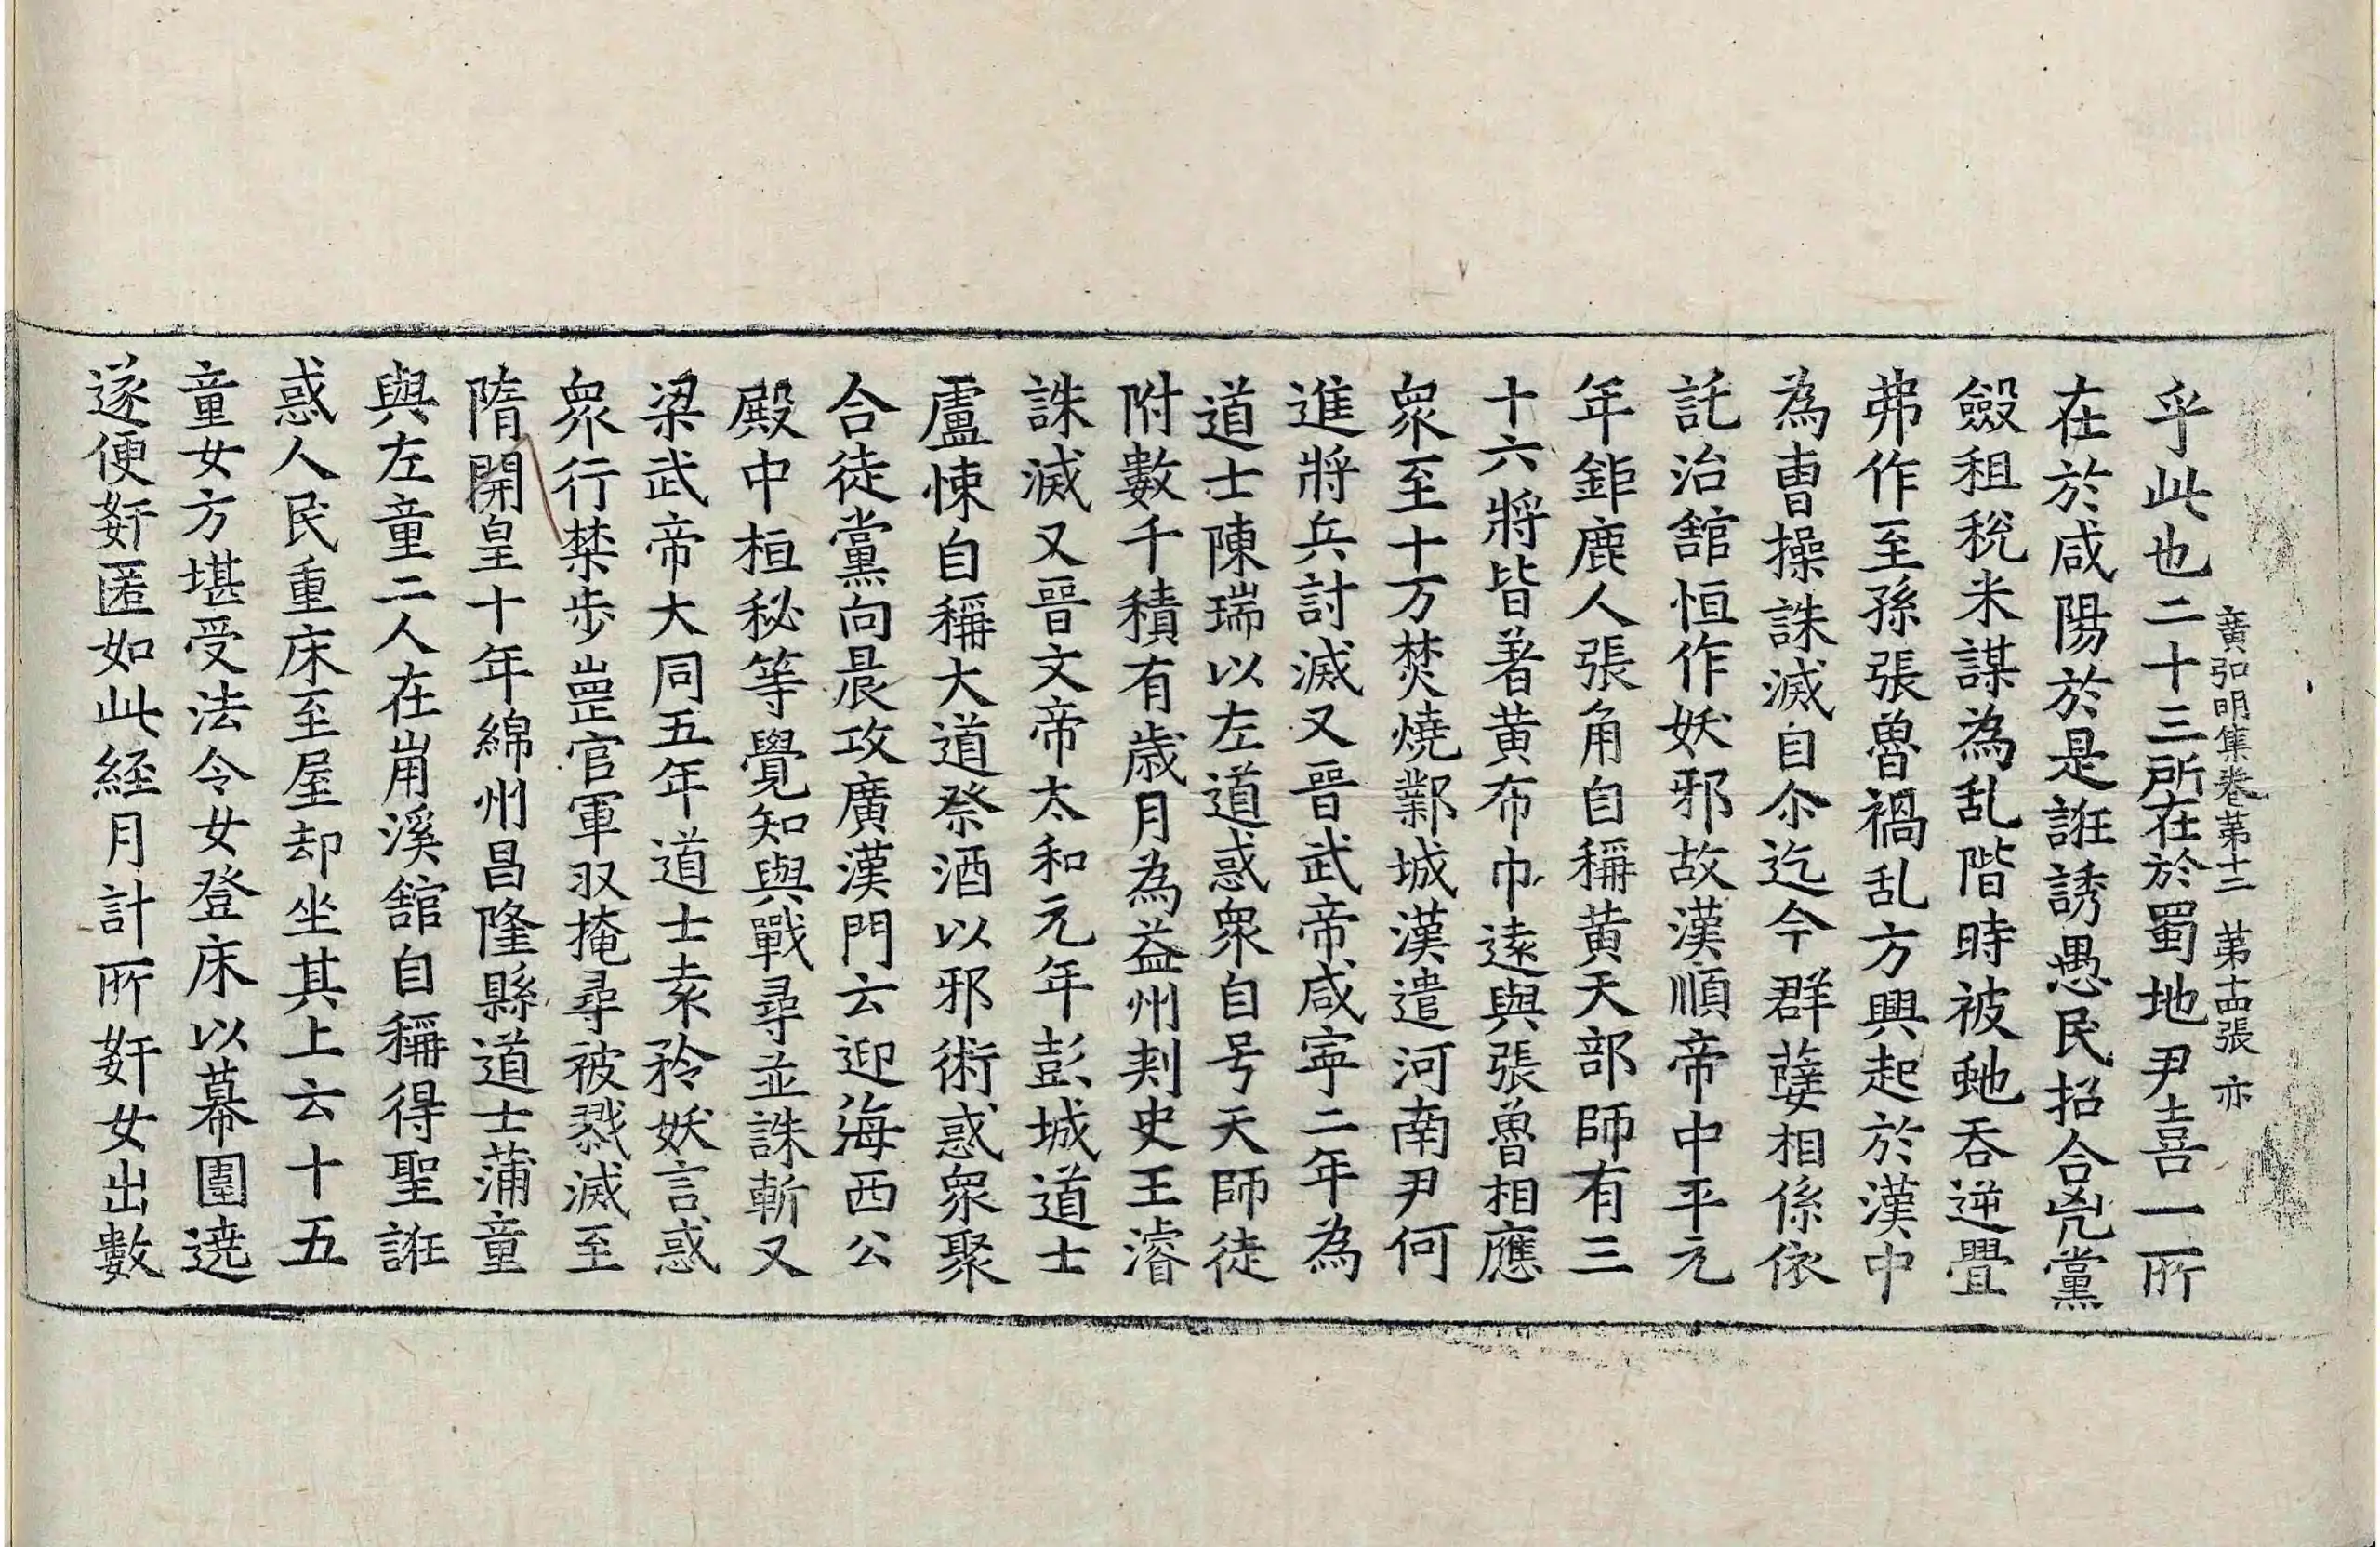 廣弘明集卷第十二 第十四張 亦
乎此也二十三所在於蜀地尹喜一所
在於咸陽於是誑誘愚民招合兇黨
斂租稅米謀為乱階時被虵吞逆舋
弗作至孫張魯禍乱方興起於漢中
為曺操誅滅自尒迄今群孽相係依
託治舘恒作妖邪故漢順帝中平元
年鉅鹿人張角自稱黄天部師有三
十六將皆著黄布巾遠與張魯相應
衆至十万焚燒鄴城漢遣河南尹何
進將兵討滅又晉武帝咸寧二年為
道士陳瑞以左道惑衆自号天師徒
附數千積有歳月為益州刾史王濬
誅滅又晉文帝太和元年彭城道士
盧悚自稱大道祭酒以邪術惑衆聚
合徒黨向晨攻廣漢門云迎海西公
殿中桓秘等覺知與戰尋並誅斬又
梁武帝大同五年道士袁矜妖言惑
衆行禁步崗官軍収掩尋被戮滅至
隋開皇十年綿州昌隆縣道士蒲童
與左童二人在崩溪舘自稱得聖誑
惑人民重床至屋却坐其上云十五
童女方堪受法令女登床以幕圍遶
遂便姧匿如此経月計所姧女出數